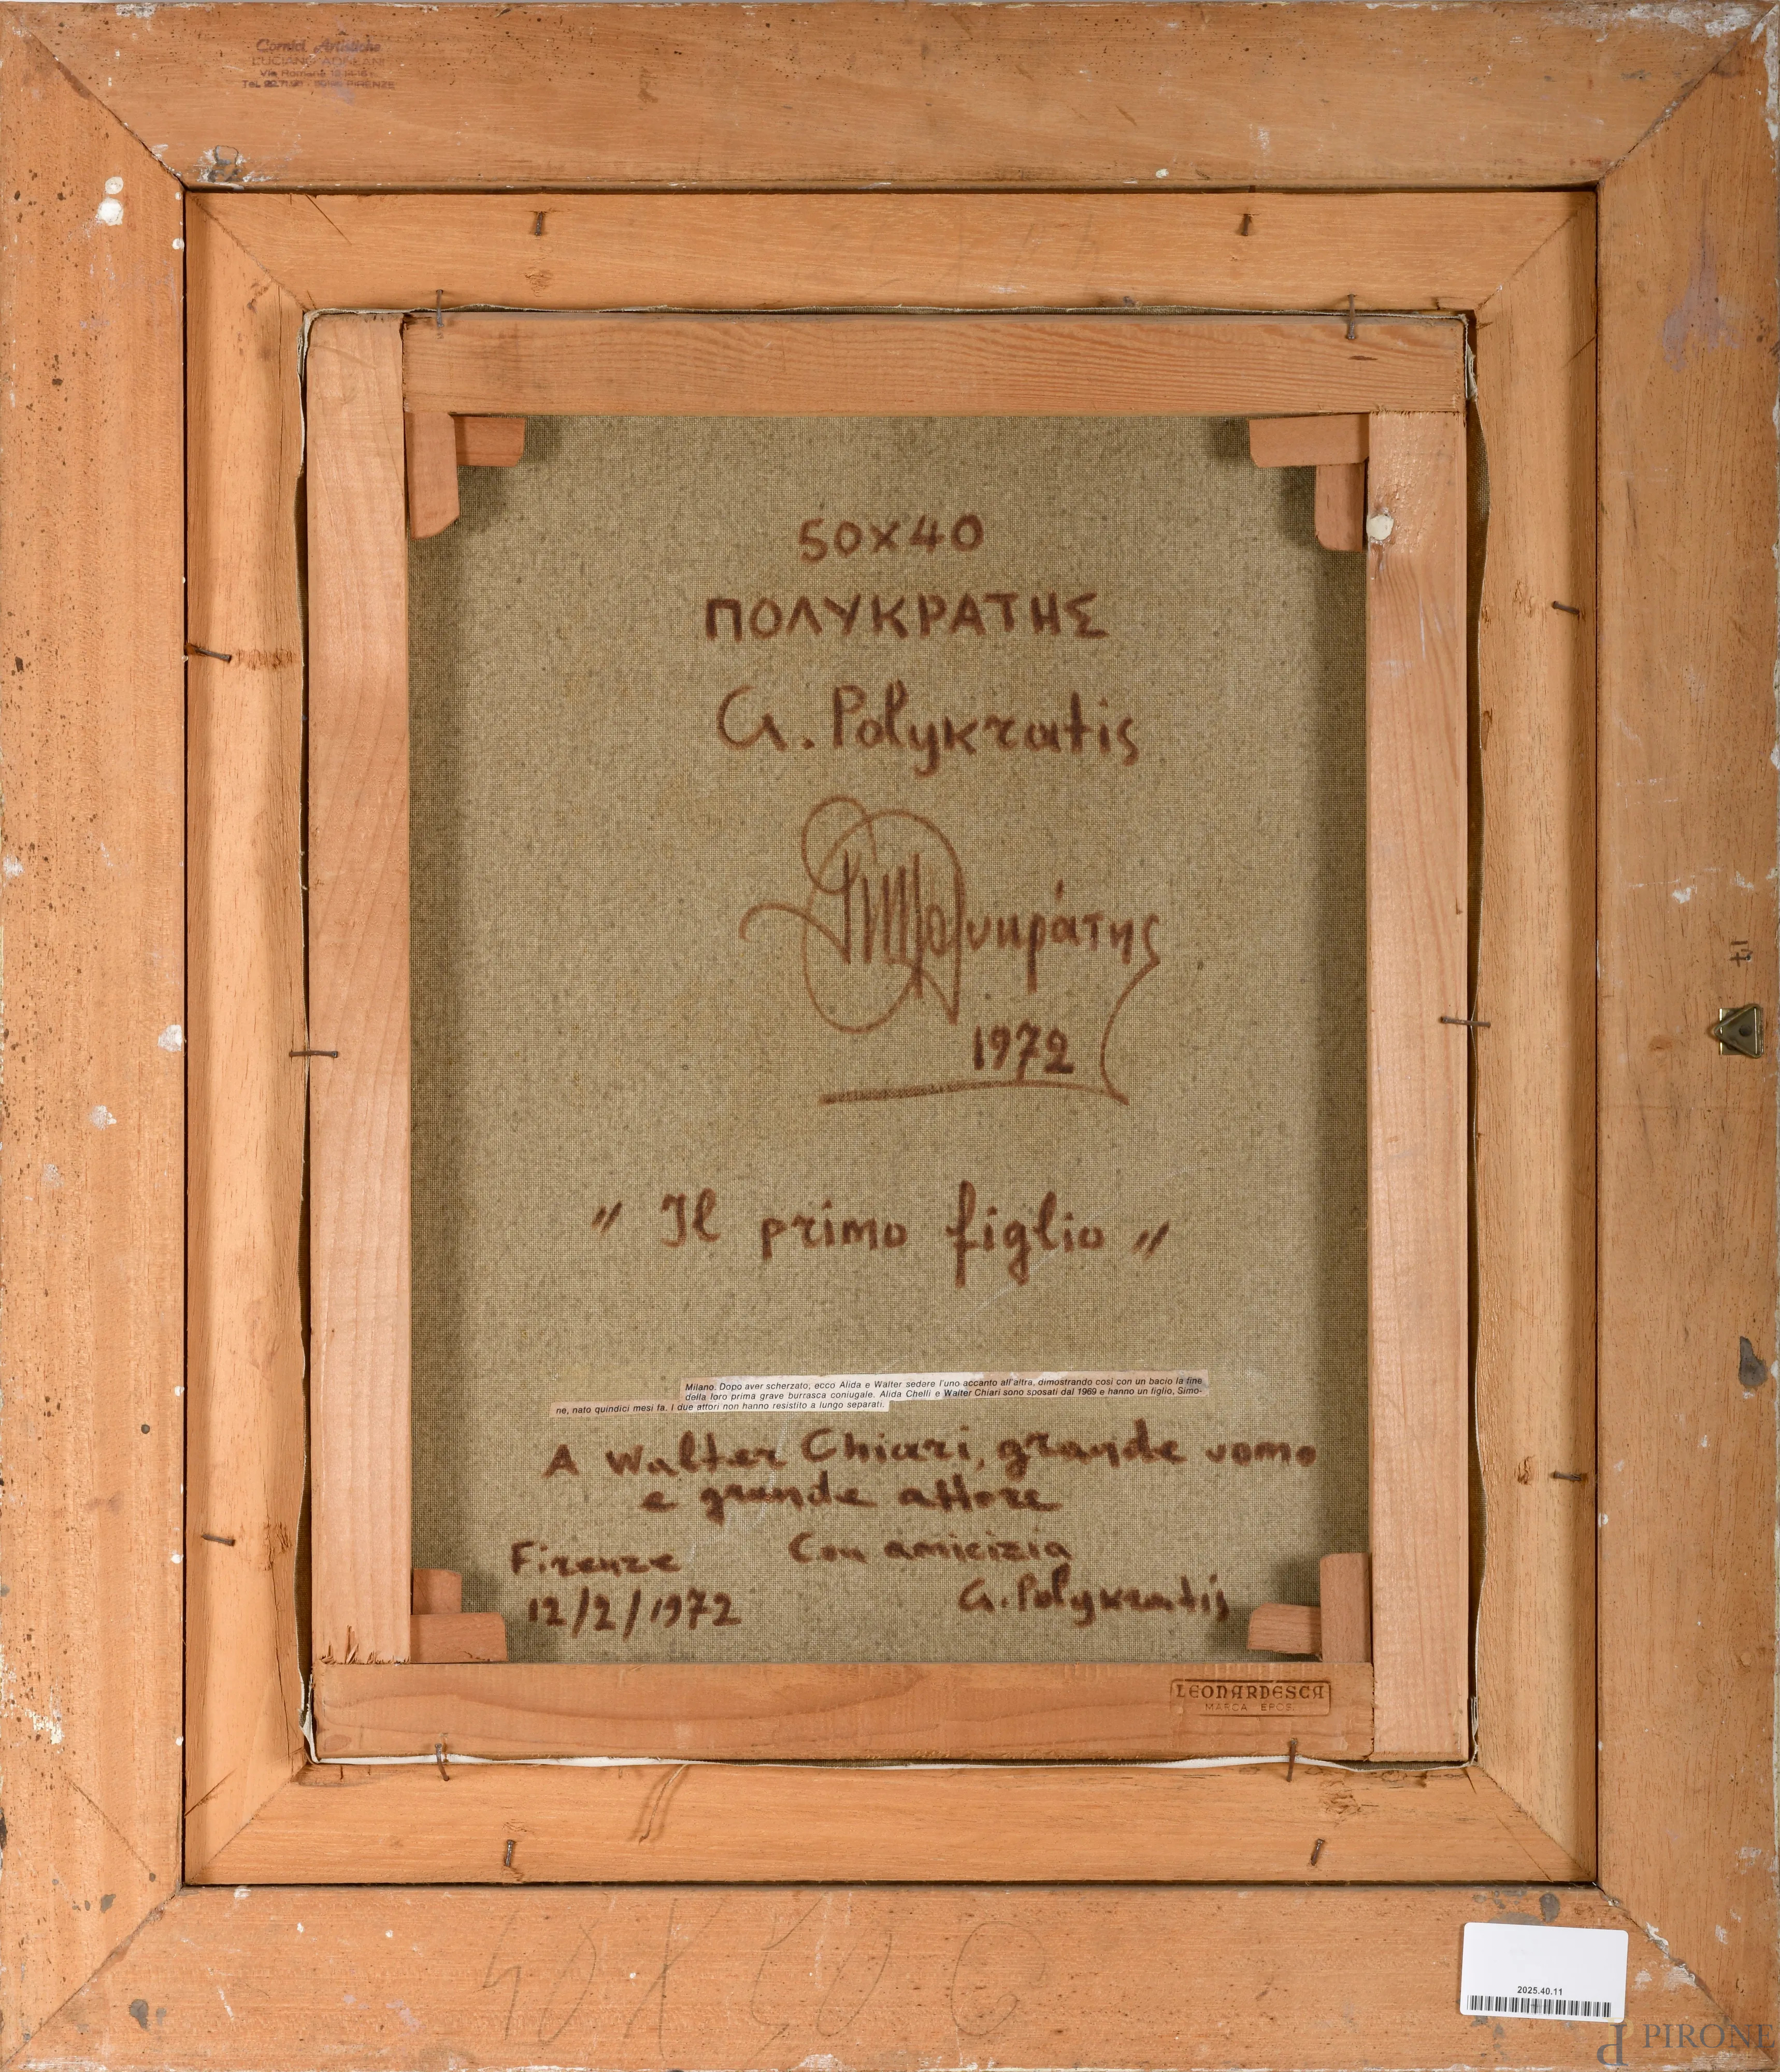 Cornici Artistiche
50X40
ΠΟΛΥΚΡΑΤΗΣ
G. Polykratis
Πολυκράτης
1972
" Il primo figlio "
Milano. Dopo aver scherzato, ecco Alida e Walter sedere l'uno accanto all'altra, dimostrando così con un bacio la fine
della loro prima grave burrasca coniugale. Alida Chelli e Walter Chiari sono sposati dal 1969 e hanno un figlio, Simo-
ne, nato quindici mesi fa. I due attori non hanno resistito a lungo separati.
A Walter Chiari, grande uomo
e grande attore
Firenze Con amicizia
12/2/1972 G. Polykratis
LEONARDESCA
MARCA
40X50
2025.40.11
PIRONE